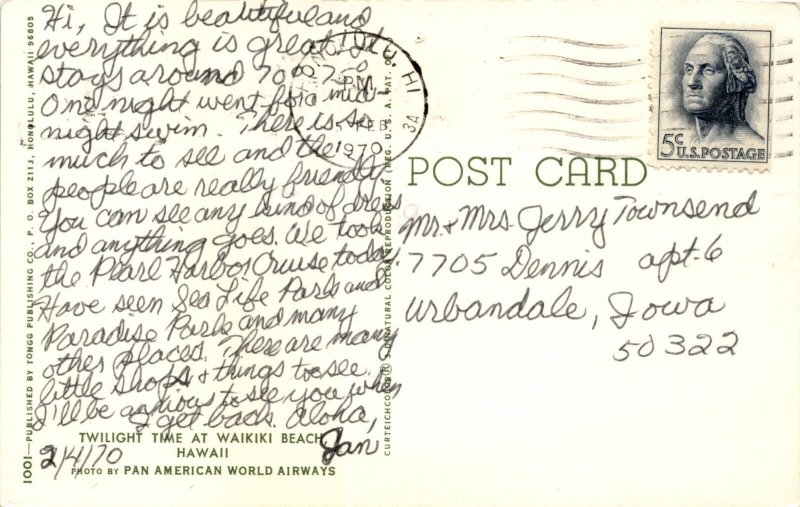 Hi, It is beautiful and
everything is great. It
stays around 70° - 75°
One night went for a mid-
night swim. There is so
much to see and the
people are really friendly.
You can see any kind of dress
and anything goes. We took
the Pearl Harbor Cruise today.
Have seen Sea Life Park and
Paradise Park and many
other places. There are many
little shops & things to see.
I'll be anxious to see you when
I get back. Aloha,
Jan
2/4/70
TWILIGHT TIME AT WAIKIKI BEACH
HAWAII
PHOTO BY PAN AMERICAN WORLD AIRWAYS
1001—PUBLISHED BY TONGG PUBLISHING CO., P. O. BOX 2113, HONOLULU, HAWAII 96805
CURTEICHCOLOR® 3-D NATURAL COLOR REPRODUCTION (REG. U. S. A. PAT. OFF.)
HONOLULU, HI
PM
5 FEB
1970
3A
5c U.S. POSTAGE
POST CARD
Mr. & Mrs. Jerry Townsend
7705 Dennis apt. 6
Urbandale, Iowa
50322